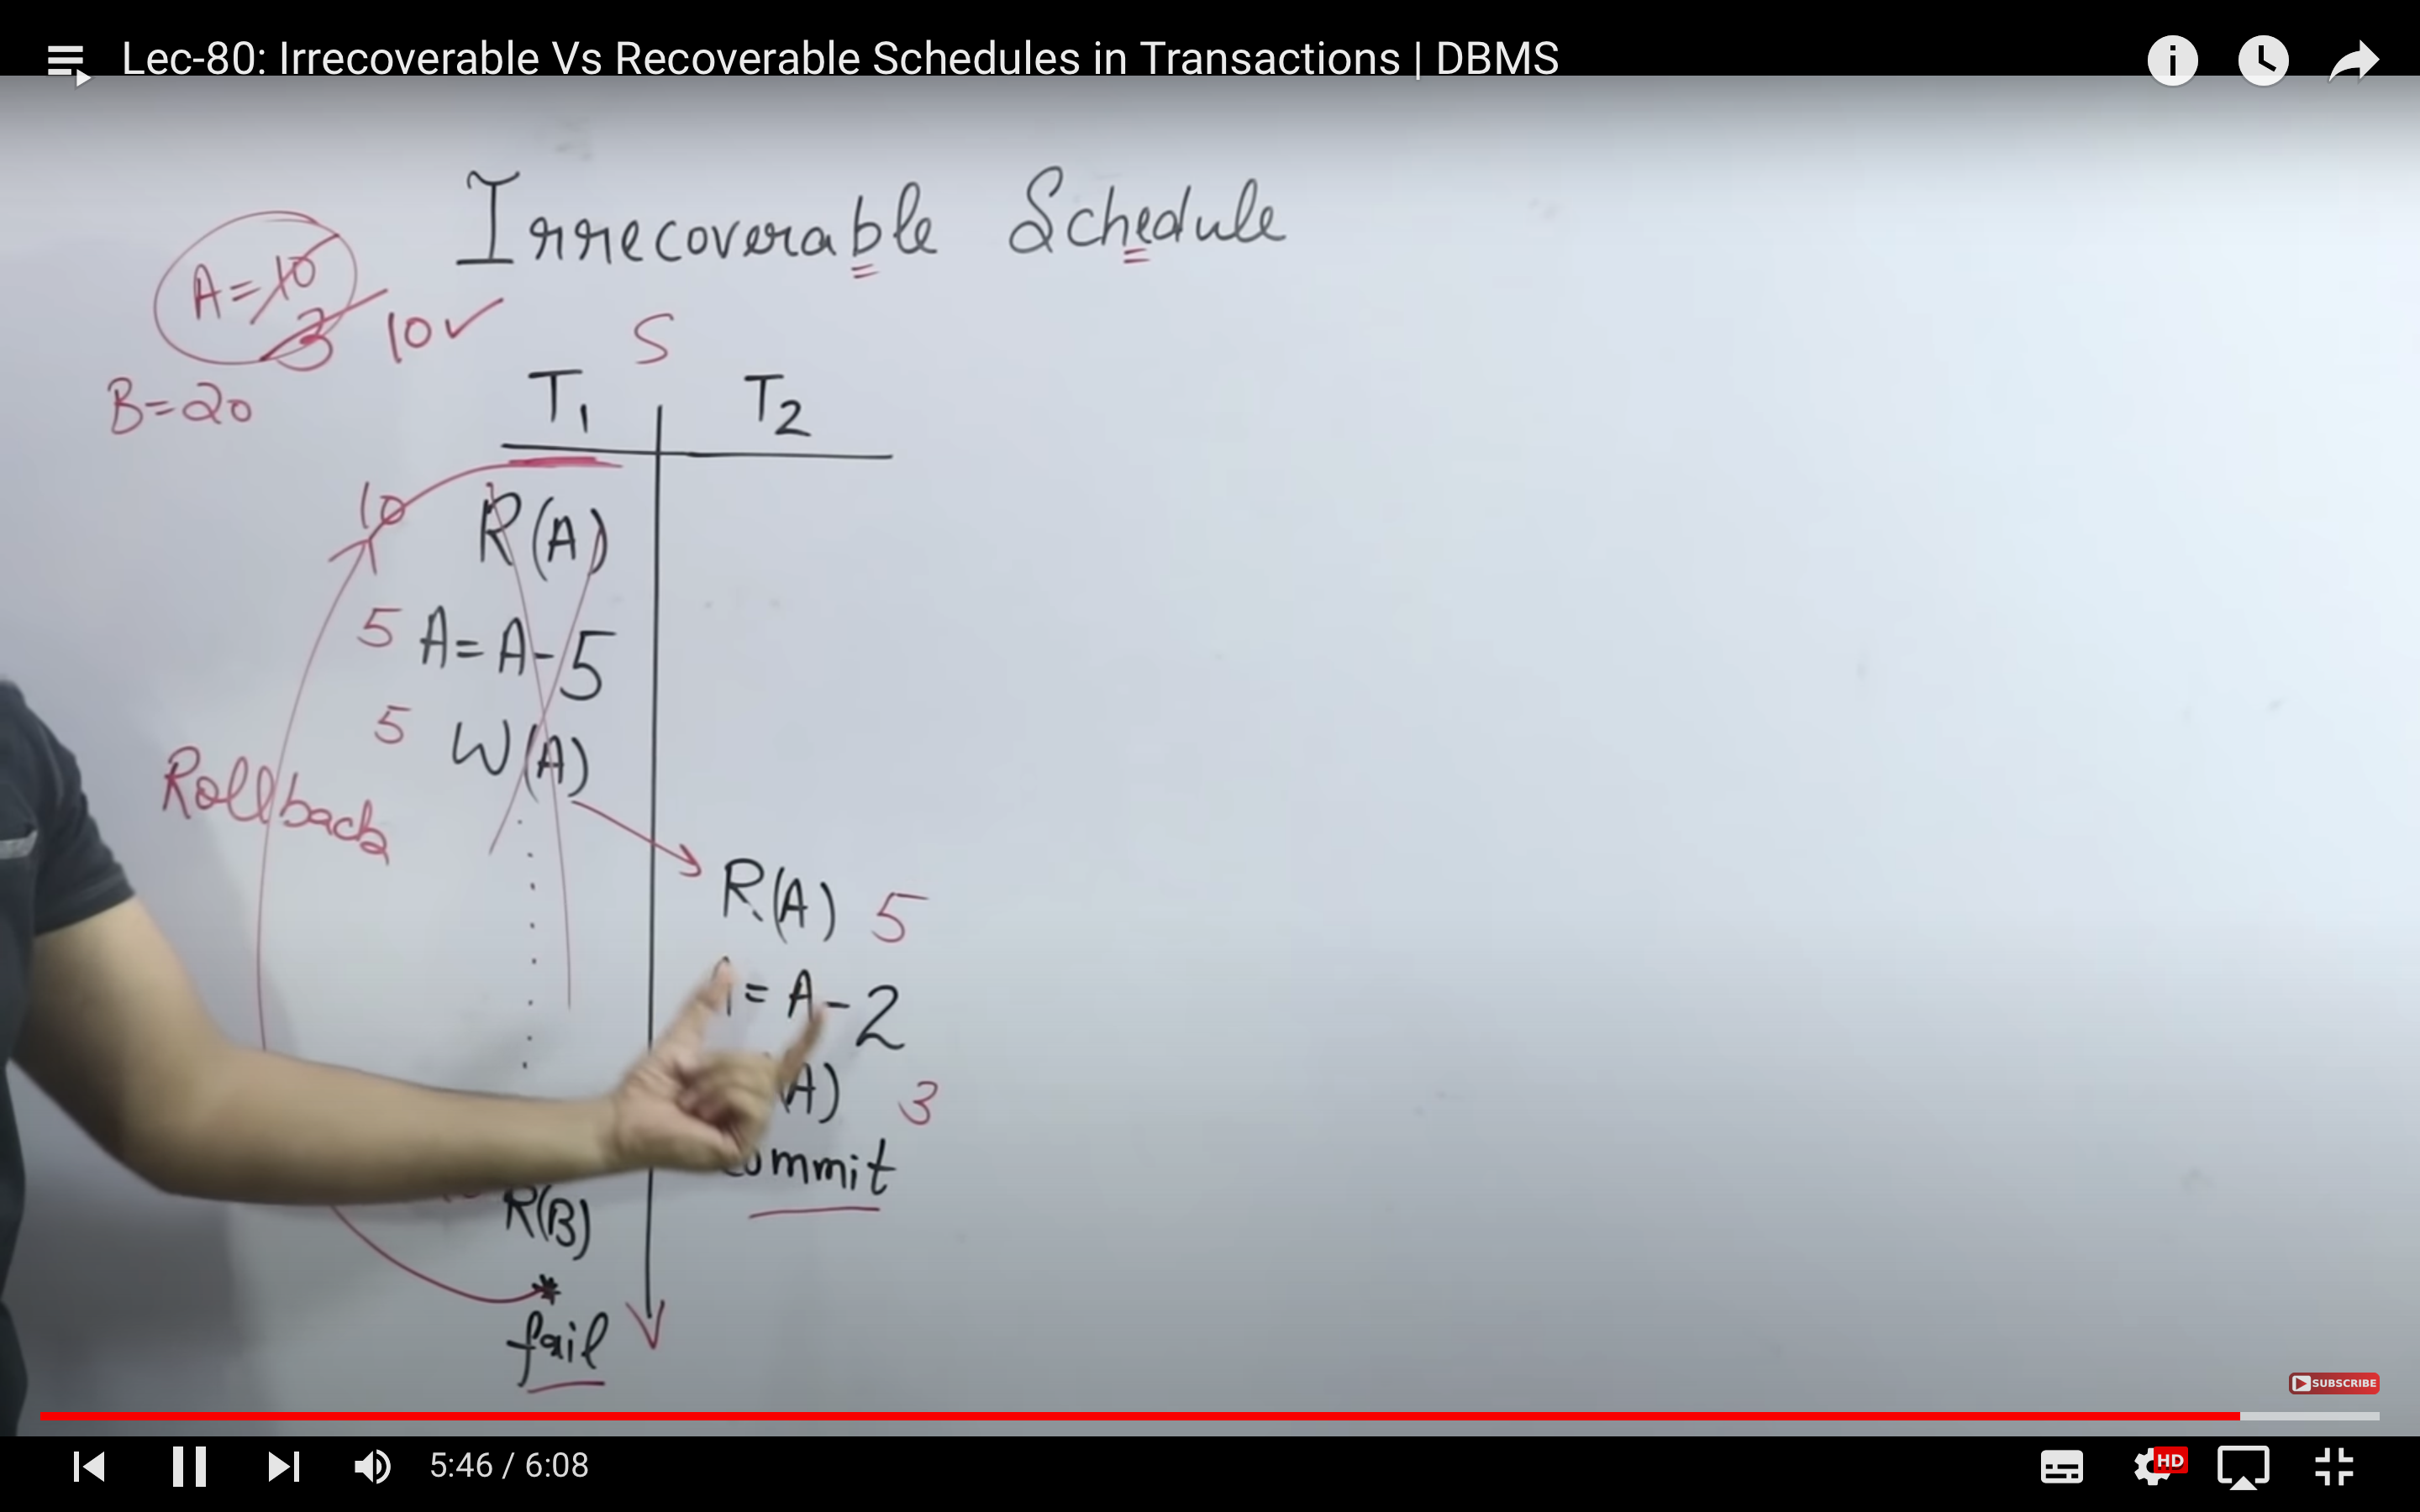 Lec-80: Irrecoverable Vs Recoverable Schedules in Transactions | DBMS
Irrecoverable Schedule
A=10
3 10✓
B=20
S
T₁ T₂
10 R(A)
5 A=A-5
5 W(A)
Rollback
R(A) 5
= A-2
(A) 3
commit
R(B)
*
fail
SUBSCRIBE
5:46 / 6:08
HD